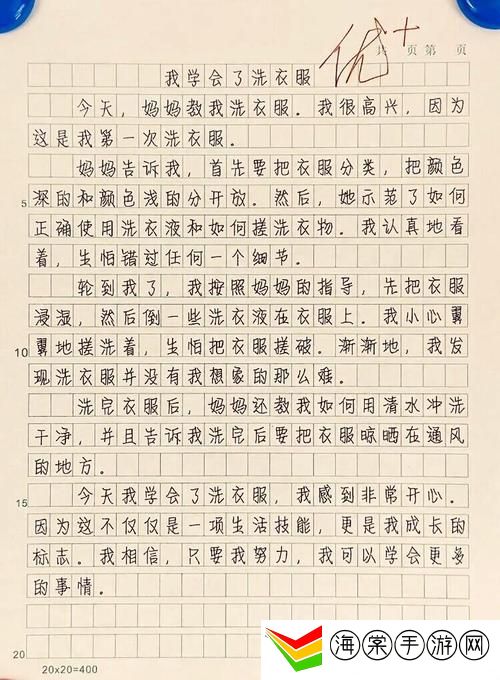 优+
共 页 第 页
我学会了洗衣服
今天，妈妈教我洗衣服。我很高兴，因为
这是我第一次洗衣服。
妈妈告诉我，首先要把衣服分类，把颜色
5 深的和颜色浅的分开放。然后，她示范了如何
正确使用洗衣液和如何搓洗衣物。我认真地看
着，生怕错过任何一个细节。
轮到我了，我按照妈妈的指导，先把衣服
浸湿，然后倒一些洗衣液在衣服上。我小心翼
10 翼地搓洗着，生怕把衣服搓破。渐渐地，我发
现洗衣服并没有我想象的那么难。
洗完衣服后，妈妈还教我如何用清水冲洗
干净，并且告诉我洗完后要把衣服晾晒在通风
的地方。
15 今天我学会了洗衣服，我感到非常开心。
因为这不仅仅是一项生活技能，更是我成长的
标志。我相信，只要我努力，我可以学会更多
的事情。
20
20×20=400
海棠手游网